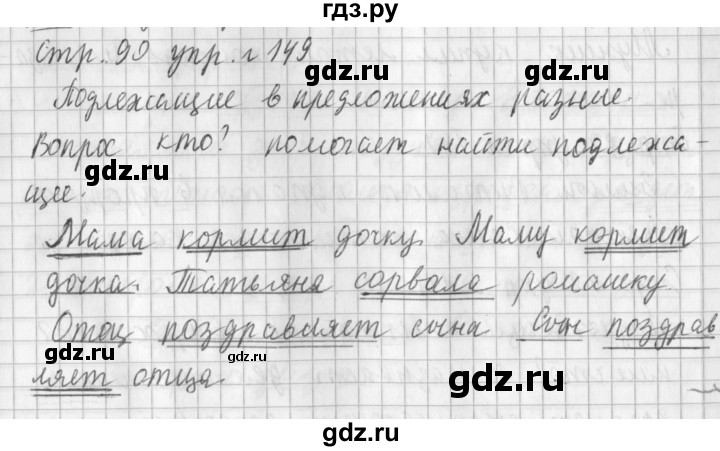 гдз.ру
стр. 90 упр. г 149
gdz.ru gdz.ru
Подлежащие в предложениях разные.
Вопрос кто? помогает найти подлежа-
gdz.ru
щее.
Мама кормит дочку. Маму кормит
gdz.ru
дочка. Татьяна сорвала ромашку.
Отец поздравляет сына Сын поздрав
gdz.ru gdz.ru
ляет отца.
gdz.ru